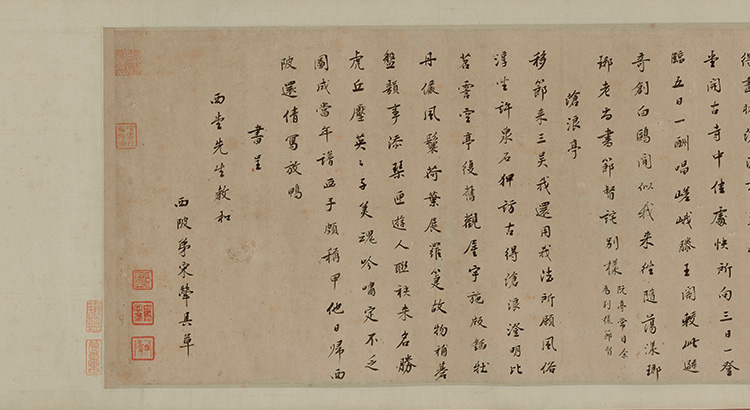 堂開古寺中佳處快所向三日一登
臨五日一酬唱嵯峨滕王閣較此遜
奇創白鷗閒似我來往隨蕩漾瑯
琊老尚書節督詫別樣
阮亭嘗目余
為列侯節督
滄浪亭
移節來三吳我還用我法所願風俗
淳坐許泉石狎訪古得滄浪澄明比
苕霅空亭復舊觀屋宇施版鍤牡
丹儼風鬟荷葉展羅箑故物補碁
盤韻事添琴匣遊人聯袂來名勝
虎丘壓英〻子美魂吟嘯定不乏
圖成當年譜亞子頗稱甲他日歸西
陂還倩寫放鴨
書呈
西堂先生教和
西陂弟宋犖具草